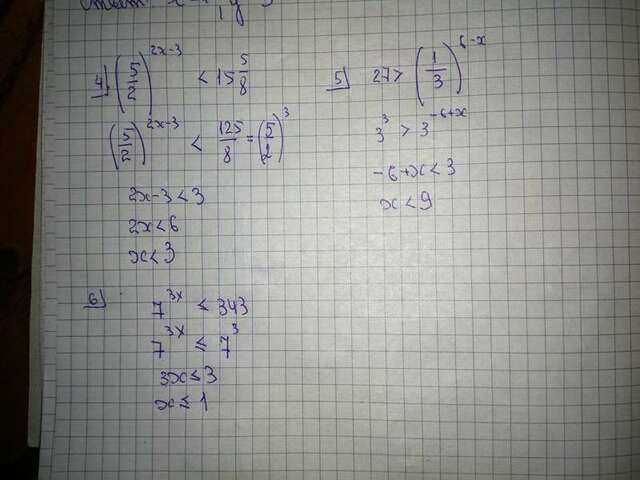 4) (5/2)^{2x-3} < 15 5/8
(5/2)^{2x-3} < 125/8 = (5/2)^3
2x-3<3
2x<6
x<3
5) 27 > (1/3)^{6-x}
3^3 > 3^{-6+x}
-6+x<3
x<9
6) 7^{3x} ≤ 343
7^{3x} ≤ 7^3
3x≤3
x≤1